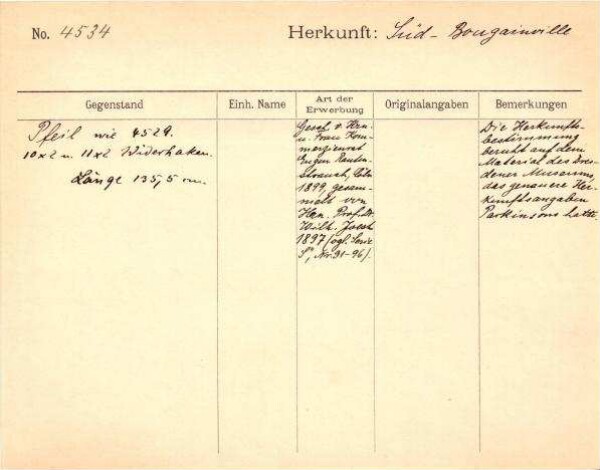 No. 4534
Herkunft: Süd-Bougainville
Gegenstand
Einh. Name
Art der
Erwerbung
Originalangaben
Bemerkungen
Pfeil wie 4529.
10x2 u. 11x2 Widerhaken.
Länge 135,5 cm.
Gesch. v. Hrn.
u. Frau Kom-
merzienrat
Eugen Rauten-
strauch, Cöln
1899, gesam-
melt von
Hrn. Prof. Dr.
Wilh. Joest
1897 (vgl. Serie
Nr. 31-96).
Die Herkunfts-
bestimmung
beruht auf dem
Material des Dres-
dener Museums,
des genauere Her-
kunftsangaben
Parkinsons hatte.